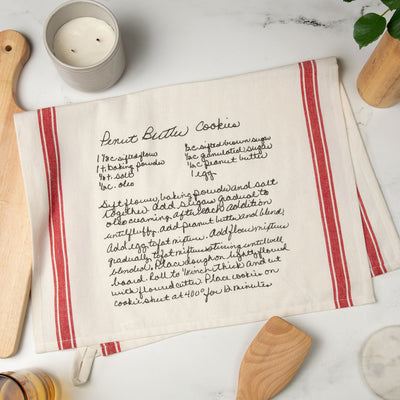 Peanut Butter Cookies
1 7/8 c. sifted flour
1 t. baking powder
1/4 t. salt
1/2 c. oleo
1/2 c. sifted brown sugar
1/2 c. granulated sugar
1/2 c. peanut butter
1 egg
Sift flour, baking powder and salt
together. Add sugar gradually to
oleo creaming after each addition
until fluffy. add peanut butter and blend;
Add egg to fat mixture. Add flour mixture
gradually to fat mixture stirring until well
blended. Place dough on lightly floured
board. Roll to 1/8 inch thick and cut
with floured cutter. Place cookies on
cookie sheet at 400° for 12 minutes